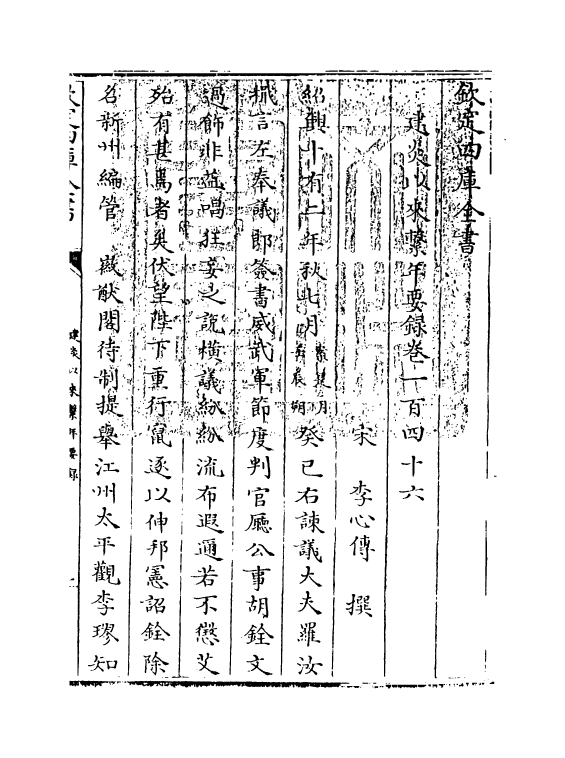 欽定四庫全書
建炎以來繫年要録卷一百四十六
宋 李心傳 撰
紹興十有二年秋七月案是月庚辰朔癸已右諫議大夫羅汝
檝言左奉議郎簽書威武軍節度判官廳公事胡銓文
過飾非益唱狂妄之說橫議紛紛流布遐邇若不懲艾
殆有甚焉者矣伏望陛下重行竄逐以伸邦憲詔銓除
名新州編管 徽猷閣待制提舉江州太平觀李璆知
欽定四庫全書
建炎以來繫年要録
一